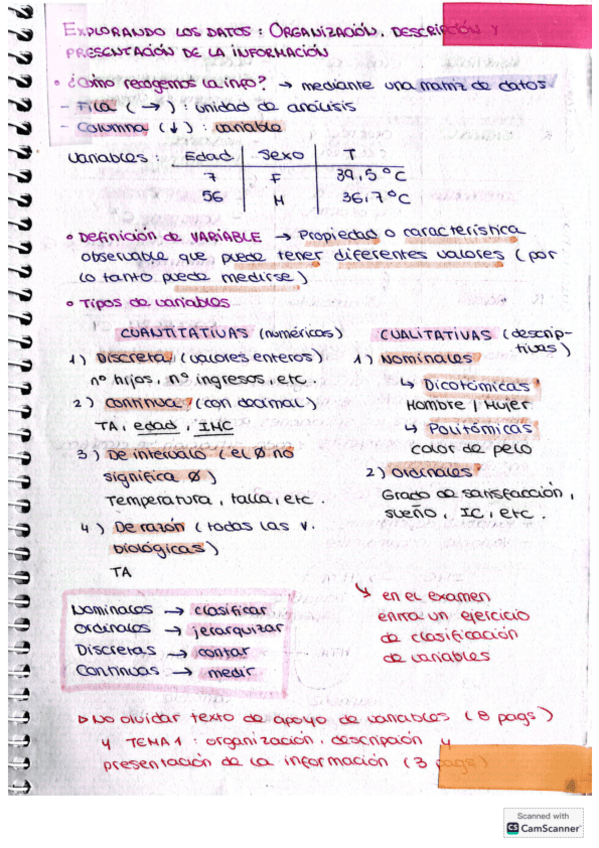 EXPLORANDO LOS DATOS: ORGANIZACIÓN, DESCRIPCIÓN Y
PRESENTACIÓN DE LA INFORMACIÓN
• ¿Cómo recogemos la info? → mediante una matriz de datos
- Fila (→): unidad de análisis
- Columna (↓): variable
Variables: Edad Sexo T
7 F 39,5°C
56 H 36,7°C
• Definición de VARIABLE → Propiedad o característica
observable que puede tener diferentes valores (por
lo tanto puede medirse)
• Tipos de variables
CUANTITATIVAS (numéricas)
1) Discreta (valores enteros)
nº hijos, nº ingresos, etc.
2) Continua (con decimal)
TA, edad, IMC
3) De intervalo (el Ø no
significa Ø)
Temperatura, talla, etc.
4) De razón (todas las v.
biológicas)
TA
CUALITATIVAS (descrip-
tivas)
1) Nominales
↳ Dicotómicas
Hombre / Mujer
↳ Politómicas
color de pelo
2) Ordinales
Grado de satisfacción,
sueño, IC, etc.
↳ en el examen
entra un ejercicio
de clasificación
de variables
Nominales → clasificar
Ordinales → jerarquizar
Discretas → contar
Continuas → medir
▷ No olvidar texto de apoyo de variables (8 pags)
y TEMA 1: organización, descripción y
presentación de la información (3 pags)
Scanned with
CS CamScanner